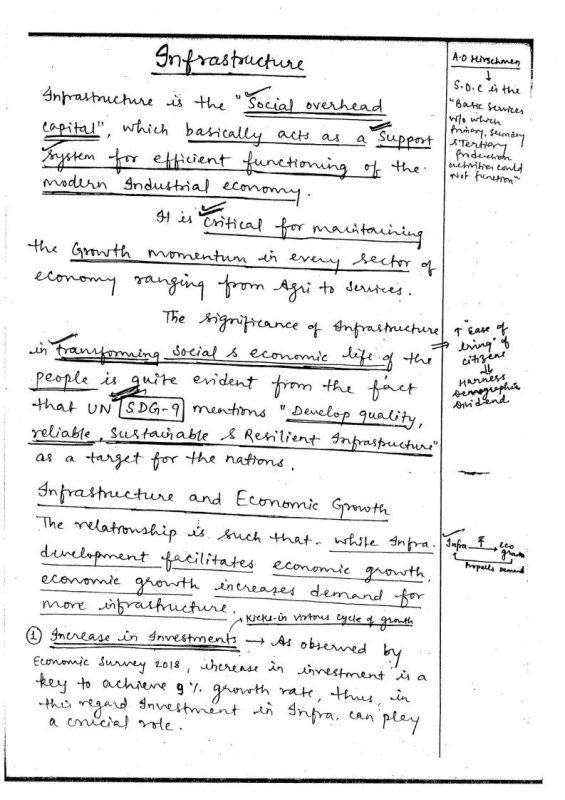 Infrastructure
Infrastructure is the "Social overhead
capital", which basically acts as a support
system for efficient functioning of the
modern Industrial economy.
It is critical for maintaining
the Growth momentum in every sector of
economy ranging from Agri to Services.
The significance of Infrastructure
in transforming social & economic life of the
people is quite evident from the fact
that UN SDG-9 mentions "Develop quality,
reliable, sustainable & Resilient Infrastructure"
as a target for the nations.
Infrastructure and Economic Growth
The relationship is such that while Infra.
development facilitates economic growth,
economic growth increases demand for
more infrastructure.
→ Kicks-in virtous cycle of growth
① Increase in Investments → As observed by
Economic Survey 2018, increase in investment is a
key to achieve 9% growth rate, thus, in
this regard Investment in Infra. can play
a crucial role.
A.O Hirschmen
↓
S.O.C is the
"Basic Services
w/o which
Primary, Secondary
& Tertiary
Production
activities could
not function"
⇒ ↑ "Ease of
living" of
citizens
⇓
Harness
Demographic
Dividend
Infra ↑ → eco
growth
Propells Demand